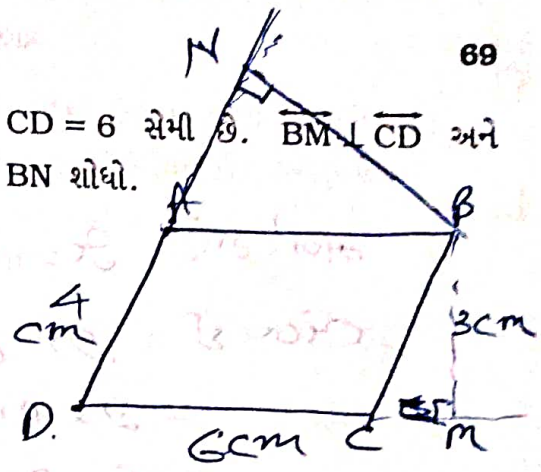 N
69
CD = 6 સેમી છે. BM ⊥ CD અને
BN શોધો.
A
B
4
cm
3cm
D.
6cm
C
M